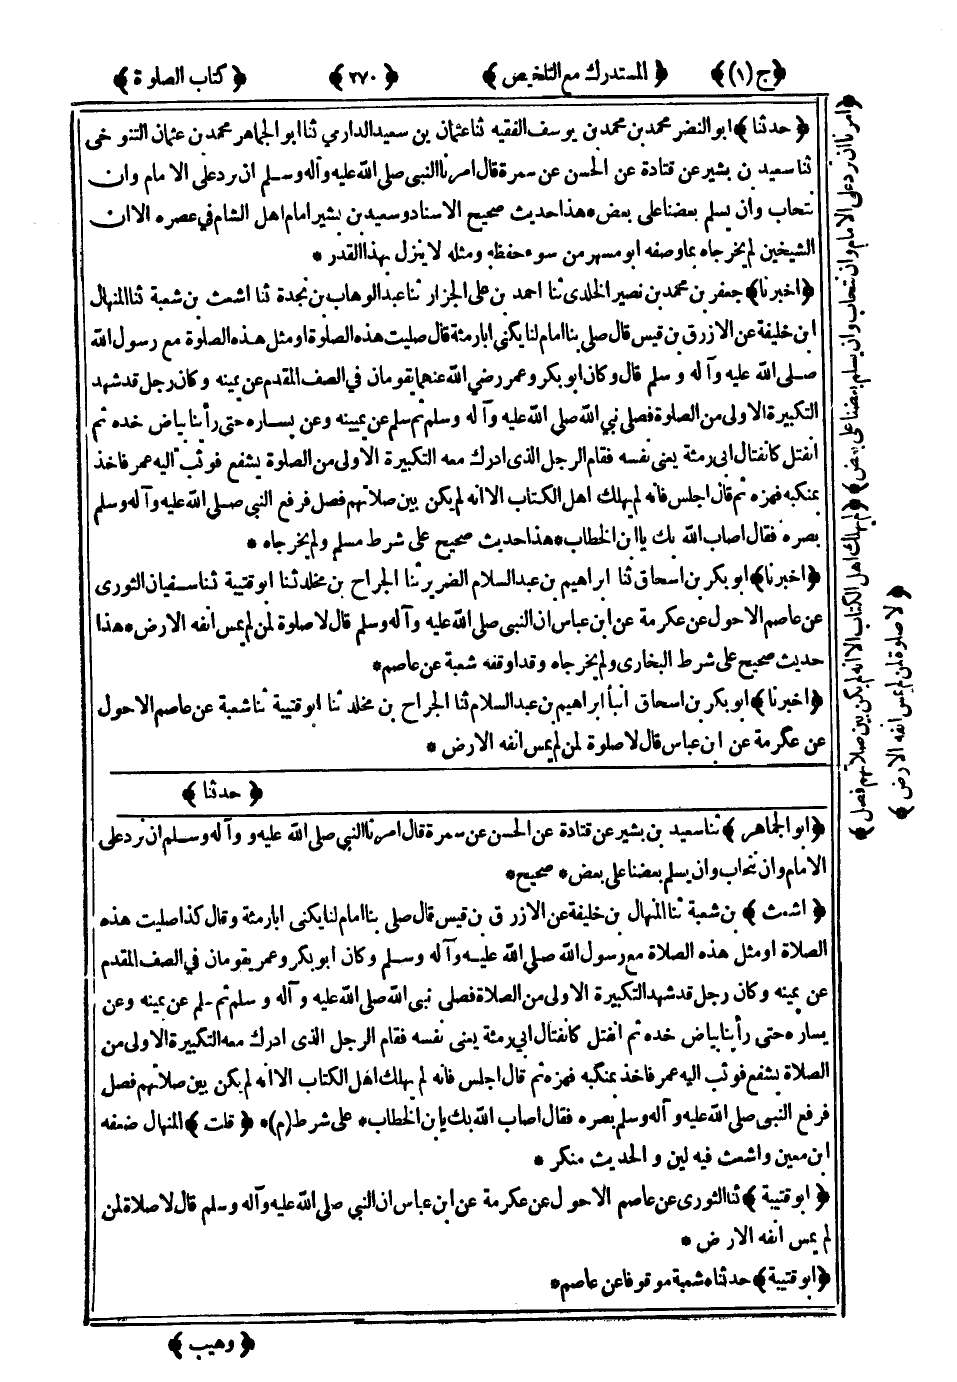 ﴿ج (١)﴾ ﴿المستدرك مع التلخيص﴾ ﴿٢٧٠﴾ ﴿كتاب الصلوة﴾
﴿حدثنا﴾ ابو النضر محمد بن محمد بن يوسف الفقيه ثنا عثمان بن سعيد الدارمي ثنا ابو الجماهر محمد بن عثمان التنوخى
ثنا سعيد بن بشير عن قتادة عن الحسن عن سمرة قال امرنا النبى صلى الله عليه وآله وسلم ان نرد على الامام وان
نتحاب وان يسلم بعضنا على بعض * هذا حديث صحيح الاسناد وسعيد بن بشير امام اهل الشام في عصره الا ان
الشيخين لم يخرجاه بما وصفه ابو مسهر من سوء حفظه ومثله لا ينزل بهذا القدر *
﴿اخبرنا﴾ جعفر بن محمد بن نصير الخلدى ثنا احمد بن على الجزار ثنا عبد الوهاب بن نجدة ثنا اشعث بن شعبة ثنا المنهال
ابن خليفة عن الازرق بن قيس قال صلى بنا امام لنا يكنى ابا رمثة قال صليت هذه الصلوة او مثل هذه الصلوة مع رسول الله
صلى الله عليه وآله وسلم قال وكان ابو بكر وعمر رضي الله عنهما يقومان في الصف المقدم عن يمينه وكان رجل قد شهد
التكبيرة الاولى من الصلوة فصلى نبي الله صلى الله عليه وآله وسلم ثم سلم عن يمينه وعن يساره حتى رأينا بياض خده ثم
انفتل كانفتال ابى رمثة يعنى نفسه فقام الرجل الذى ادرك معه التكبيرة الاولى من الصلوة يشفع فوثب اليه عمر فاخذ
بمنكبه فهزه ثم قال اجلس فانه لم يهلك اهل الكتاب الا انه لم يكن بين صلاتهم فصل فرفع النبي صلى الله عليه وآله وسلم
بصره فقال اصاب الله بك يا ابن الخطاب * هذا حديث صحيح على شرط مسلم ولم يخرجاه *
﴿اخبرنا﴾ ابو بكر بن اسحاق ثنا ابراهيم بن عبد السلام الضرير ثنا الجراح بن مخلد ثنا ابو قتيبة ثنا سفيان الثورى
عن عاصم الاحول عن عكرمة عن ابن عباس ان النبى صلى الله عليه وآله وسلم قال لا صلوة لمن لم يمس انفه الارض * هذا
حديث صحيح على شرط البخارى ولم يخرجاه وقد اوقفه شعبة عن عاصم *
﴿اخبرنا﴾ ابو بكر بن اسحاق انبأ ابراهيم بن عبد السلام ثنا الجراح بن مخلد ثنا ابو قتيبة ثنا شعبة عن عاصم الاحول
عن عكرمة عن ابن عباس قال لا صلوة لمن لم يمس انفه الارض *
﴿حدثنا﴾
﴿ابو الجماهر﴾ ثنا سعيد بن بشير عن قتادة عن الحسن عن سمرة قال امرنا النبى صلى الله عليه وآله وسلم ان نرد على
الامام وان نتحاب وان يسلم بعضنا على بعض * صحيح *
﴿اشعث﴾ بن شعبة ثنا المنهال بن خليفة عن الازرق بن قيس قال صلى بنا امام لنا يكنى ابا رمثة وقال كذا صليت هذه
الصلاة او مثل هذه الصلاة مع رسول الله صلى الله عليه وآله وسلم وكان ابو بكر وعمر يقومان في الصف المقدم
عن يمينه وكان رجل قد شهد التكبيرة الاولى من الصلاة فصلى نبي الله صلى الله عليه وآله وسلم ثم سلم عن يمينه وعن
يساره حتى رأينا بياض خده ثم انفتل كانفتال ابي رمثة يعنى نفسه فقام الرجل الذى ادرك معه التكبيرة الاولى من
الصلاة يشفع فوثب اليه عمر فاخذ بمنكبه فهزه ثم قال اجلس فانه لم يهلك اهل الكتاب الا انه لم يكن بين صلاتهم فصل
فرفع النبى صلى الله عليه وآله وسلم بصره فقال اصاب الله بك يا ابن الخطاب * على شرط (م) * ﴿قلت﴾ المنهال ضعفه
ابن معين واشعث فيه لين والحديث منكر *
﴿ابو قتيبة﴾ ثنا الثورى عن عاصم الاحول عن عكرمة عن ابن عباس ان النبي صلى الله عليه وآله وسلم قال لا صلاة لمن
لم يمس انفه الارض *
﴿ابو قتيبة﴾ حدثناه شعبة موقوفا عن عاصم *
﴿وهيب﴾
﴿امرنا ان نرد على الامام وان نتحاب وان يسلم بعضنا على بعض﴾ ﴿لم يهلك اهل الكتاب الا انه لم يكن بين صلاتهم فصل﴾
﴿لا صلوة لمن لم يمس انفه الارض﴾